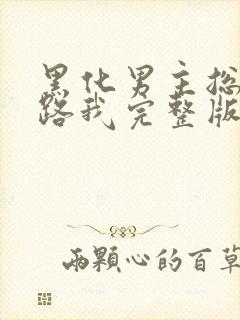 黑化男主总
路我完整版
两颗心的百草